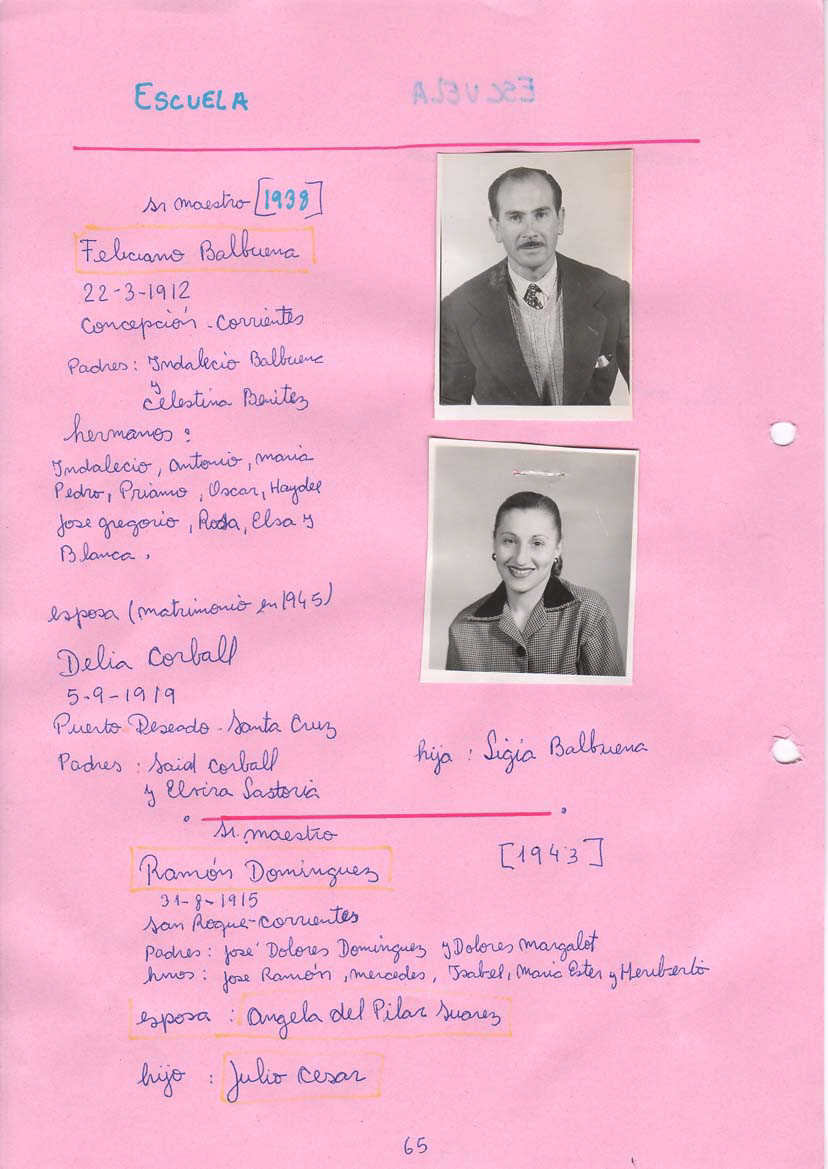 ESCUELA
sr maestro [1938]
Feliciano Balbuena
22-3-1912
Concepción - Corrientes
Padres: Indalecio Balbuena
y
Celestina Benitez
hermanos:
Indalecio, Antonio, maria
Pedro, Priamo, Oscar, Haydee
Jose gregorio, Rosa, Elsa y
Blanca.
esposa (matrimonio en 1945)
Delia Corball
5-9-1919
Puerto Deseado - Santa Cruz
Padres: Said Corball
y Elvira Sastoria
hija: Ligia Balbuena
Sr. maestro
[1943]
Ramón Dominguez
31-8-1915
San Roque - Corrientes
Padres: José Dolores Dominguez y Dolores Margalot
hnos: Jose Ramón, mercedes, Isabel, Maria Ester y Heriberto
esposa: Angela del Pilar Suarez
hijo: Julio Cesar
65